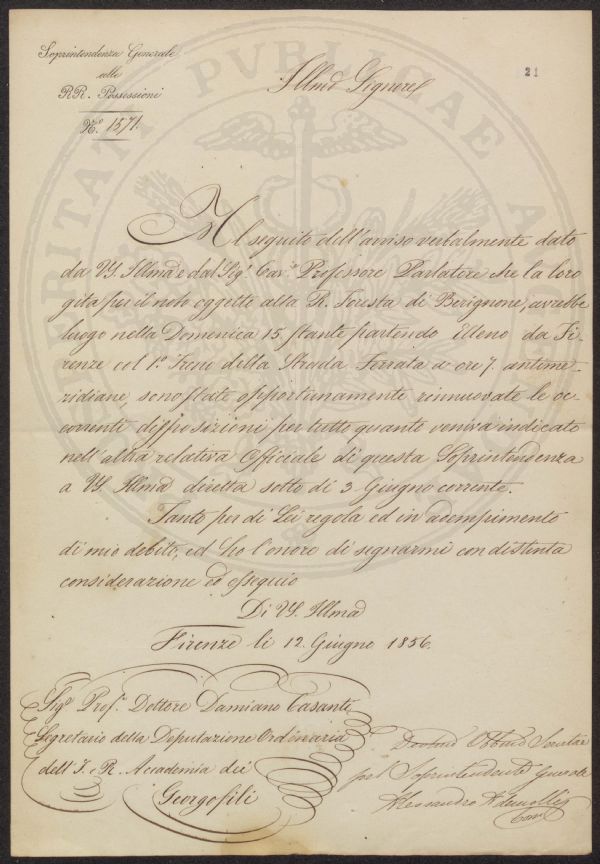 Soprintendenza Generale
alle
RR. Possessioni
N.° 1571.
21
Illmo Signore
Al seguito dell'avviso verbalmente dato
da VS. Illma e dal Sig. Cav.e Professore Parlatore che la loro
gita per il noto oggetto alla R. Foresta di Berignone, avrebbe
luogo nella Domenica 15 stante partendo Elleno da Fi-
renze col 1.° Treno della Strada Ferrata a ore 7. antime-
ridiane, sono state opportunamente rinnuovate le oc-
correnti disposizioni per tutto quanto veniva indicato
nell'altra relativa Officiale di questa Soprintendenza
a VS. Illma diretta sotto dì 3 Giugno corrente.
Tanto per di Lei regola ed in adempimento
di mio debito, ed ho l'onore di segnarmi con distinta
considerazione ed ossequio
Di VS. Illma
Firenze li 12. Giugno 1856.
Sig.r Prof.r Dottore Damiano Casanti
Segretario della Deputazione Ordinaria
dell'I. e R. Accademia dei
Georgofili
Devmo Obbmo Servitore
pel Soprintendente Generale
Alessandro
PROSPERITATI PVBLICAE AVGENDAE